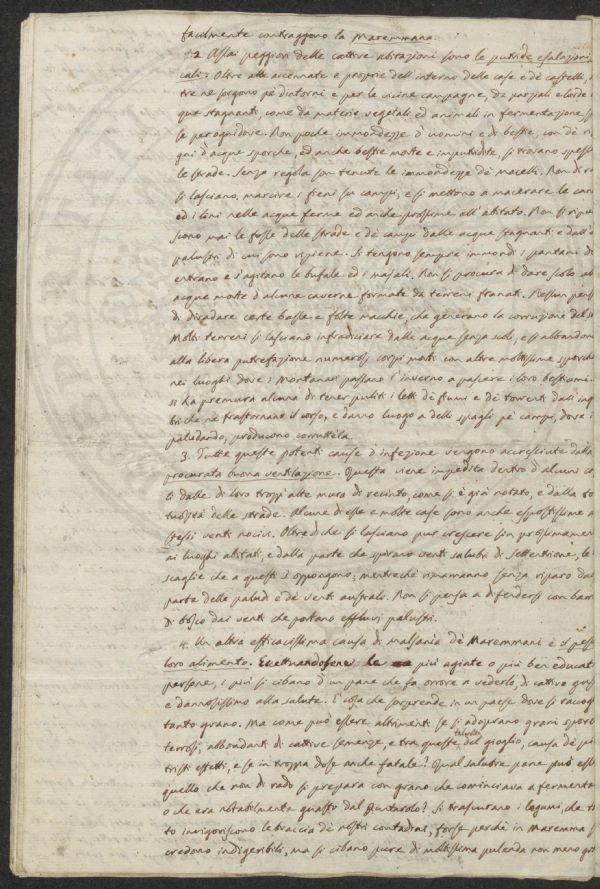 facilmente contraggono la Maremmana.
2 Assai peggiori delle cattive abitazioni sono le putride esalazioni
cali. Oltre alle accennate e proprie dell'interno delle case e de' castelli,
tre ne sorgono pe' dintorni e per le vicine campagne, da
que stagnanti, come da materie vegetali ed animali in fermentazione
le perognidove. Non poche immondezze d'uomini e di bestie, con de'
gni d'acque sporche, ed anche bestie morte e imputridite, si trovano
le strade. Senza regola son tenute le immondezze de' macelli. Non di
si lasciano, marcire i fieni su campi, e si mettono a macerare le
ed i lini nelle acque ferme ed anche prossime all'abitato. Non si
scono mai le fosse delle strade e de' campi dalle acque stagnanti e dall'
palustri di cui sono ripiene. Si tengono sempre immondi i pantani
entrano e s'agitano le bufale ed i majali. Non si procura di dare scolo
acque morte d'alcune caverne formate da terreni franati. Nessun
di diradare certe basse e folte macchie, che generano la corruzione
Molti terreni si lasciano infradiciare dalle acque senza scoli, e si
alla libera putrefazione numerosi corpi morti con altre moltissime
nei luoghi dove i Montanari passano l'inverno a pascere i loro bestiami.
si ha premura alcuna di tener puliti i letti de' fiumi e de' torrenti dall'
che ne trastornano il corso, e danno luogo a delli spagli pe' campi, dove
paludando, producono corruttela.
3. Tutte queste potenti cause d'infezione vengono accresciute dalla
procurata buona ventilazione. Questa viene impedita dentro d'alcuni
li dalle di loro troppo alte mura di recinto, come si è già notato, e dalla
tuosità delle strade. Alcune di esse e molte case sono anche espostissime
stessi venti nocivi. Oltre di che si lasciano pur crescere fin prossimamen
ai luoghi abitati, e dalla parte che spirano venti salubri di Settentrione, le
scaglie che a questi s'oppongono, mentreché rimamanno senza riparo
parte delle paludi e de' venti australi. Non si pensa a difendersi con
di bosco dai venti che portano effluvi palustri.
4. Un altra efficacissima causa di malsania de' Maremmani è il
loro alimento. Eccettuandosene le più agiate o più ben
persone, i più si cibano d'un pane che fa orrore a vederlo, di cattivo
e dannosissimo alla salute. E' cosa che sorprende in un paese dove si
tanto grano. Ma come può essere altrimenti se si adoprano grani
terrosi, abbondanti di cattive semenze, e tra queste talvolta del gioglio, causa de'
tristi effetti, e se in troppa dose anche fatale? Qual salubre pane può
quello che non di rado si prepara con grano che cominciava a
o che era notabilmente guasto dal Puntarolo? Si trascurano i legumi, che
to invigoriscono le braccia de' nostri contadini, forse perchè in Maremma
credono indigeribili, ma si cibano pure di moltissima pulenda non meno